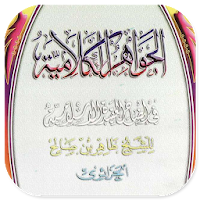 الجواهر الكلامية
في إيضاح العقيدة الإسلامية
للشيخ طاهر بن صالح
الجزائري